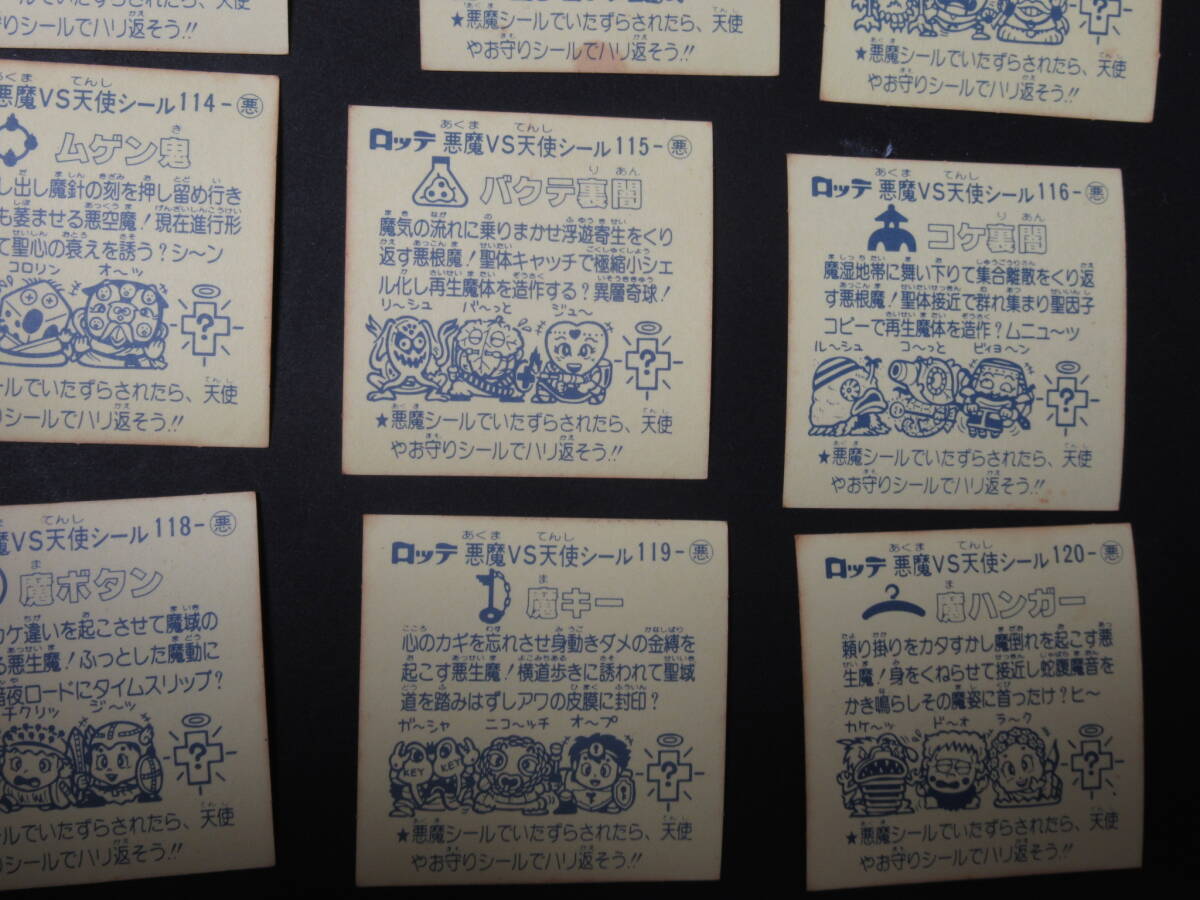 ★悪魔シールでいたずらされたら、天使
やお守りシールでハリ返そう!!
★悪魔シールでいたずらされたら、天使
やお守りシールでハリ返そう!!
いたずらされたら、天使
守りシールでハリ返そう!!
悪魔VS天使シール114-悪
ムゲン鬼
し出し魔針の刻を押し留め行き
も萎ませる悪空魔!現在進行形
て聖心の衰えを誘う?シ〜ン
コロリン オ〜ッ
?
シールでいたずらされたら、天使
守りシールでハリ返そう!!
ロッテ 悪魔VS天使シール115-悪
バクテ裏闇
魔気の流れに乗りまかせ浮遊寄生をくり
返す悪根魔!聖体キャッチで極縮小シェ
ル化し再生魔体を造作する?異層奇球!
リ〜シュ バ〜っと ジュ〜
?
★悪魔シールでいたずらされたら、天使
やお守りシールでハリ返そう!!
ロッテ 悪魔VS天使シール116-悪
コケ裏闇
魔湿地帯に舞い下りて集合離散をくり返
す悪根魔!聖体接近で群れ集まり聖因子
コピーで再生魔体を造作?ムニュ〜ツ
ル〜シュ コ〜っと ピィヨ〜ン
?
★悪魔シールでいたずらされたら、天使
やお守りシールでハリ返そう!!
魔VS天使シール118-悪
魔ボタン
カケ違いを起こさせて魔域の
る悪生魔!ふっとした魔動に
暗夜ロードにタイムスリップ?
チクリッ ジ〜ッ
?
ールでいたずらされたら、天使
守りシールでハリ返そう!!
ロッテ 悪魔VS天使シール119-悪
魔キー
心のカギを忘れさせ身動きダメの金縛を
起こす悪生魔!横道歩きに誘われて聖域
道を踏みはずしアワの皮膜に封印?
ガ〜シャ ニコ〜ッチ オ〜プ
KEY KEY
?
★悪魔シールでいたずらされたら、天使
やお守りシールでハリ返そう!!
ロッテ 悪魔VS天使シール120-悪
魔ハンガー
頼り掛りをカタすかし魔倒れを起こす悪
生魔!身をくねらせて接近し蛇腹魔音を
かき鳴らしその魔姿に首ったけ?ヒ〜
カケ〜ッ ド〜ォ ラ〜ク
?
★悪魔シールでいたずらされたら、天使
やお守りシールでハリ返そう!!